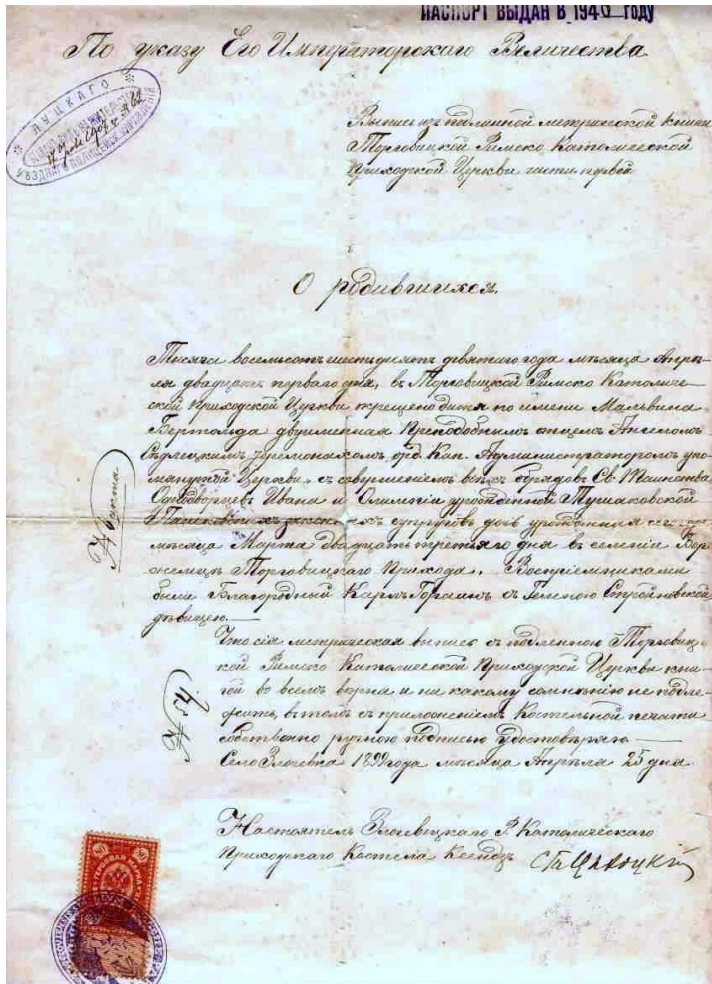 ПАСПОРТ ВЫДАН В 194 ГОДУ
По указу Его Императорскаго Величества
ЛУЦКАГО
УѢЗДНАГО ПОЛИЦЕЙСК УПРАВЛЕНІЯ
Выпись изъ подлинной метрической книги
Торговицкой Римско Католической
Приходской Церкви части первой
О родившихся.
Тысяча восемьсотъ шестьдесятъ девятаго года мѣсяца Апрѣ-
ля двадцать перваго дня, въ Торговицкой Римско Католиче-
ской Приходской Церкви крещено дитя по имени Мальвина
Бертольда двуименная Преподобнымъ отцемъ Ансельмомъ
Сѣдлецкимъ Іеромонахомъ, орд. Кап. Администраторомъ упо-
мянутой Церкви, съ совершеніемъ всѣхъ обрядовъ Св. Таинства
Ивана и Олимпіи урожденной Тушаковской
законныхъ супруговъ дочь урожденная сего
мѣсяца Марта двадцать третьяго дня въ селеніи
Торговицкаго Прихода. Воспріемниками
были Благородный Карлъ съ Геленою Стройновской
дѣвицею.—
Что сія метрическая выпись съ подленною Торговиц-
кой Римско Католической Приходской Церкви кни-
гой во всемъ верна и ни какому сомнѣнію не подле-
житъ, въ томъ съ приложеніемъ Костельной печати
собственно ручною подписью удостовѣряю—
Село Злочевка 1899 года мѣсяца Апрѣля 25 дня.
Настоятель Злочевицкаго Р. Католическаго
Приходскаго Костела Ксендзъ
80 80